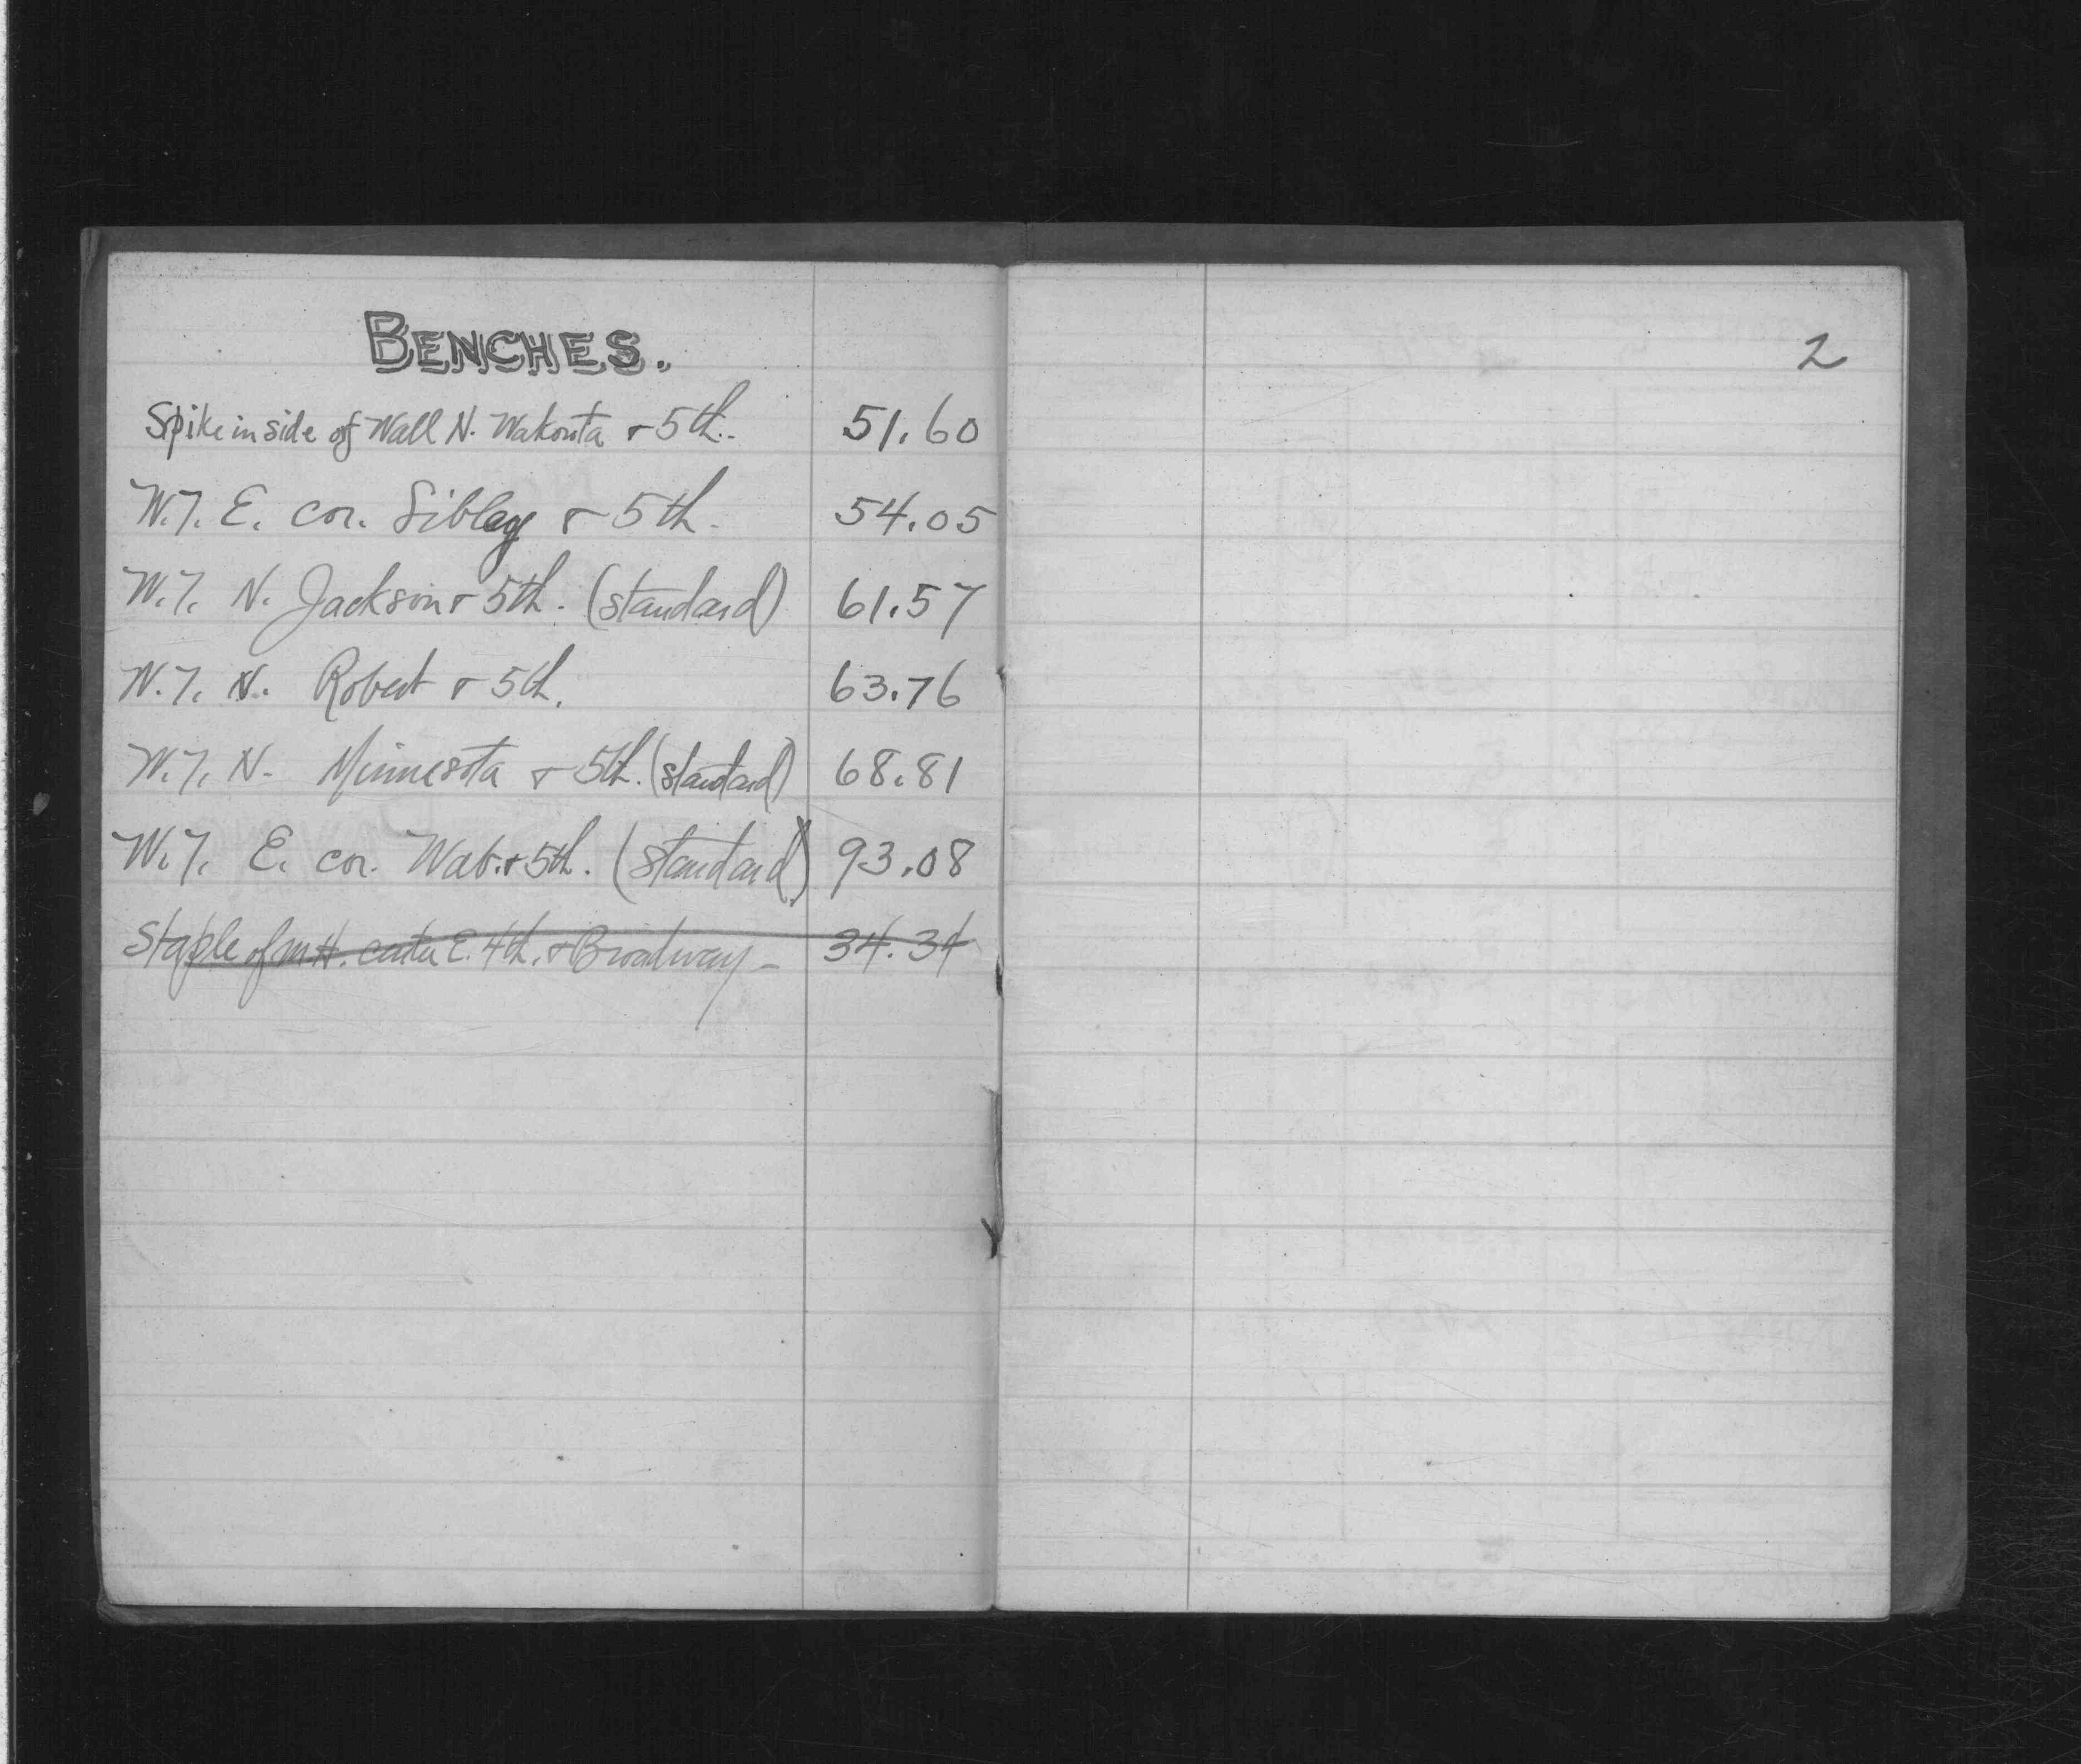 BENCHES.
Spike in side of Wall N. Wakouta & 5th. 51.60
W.T. E. cor. Sibley & 5th. 54.05
W.T. N. Jackson & 5th. (standard) 61.57
W.T. N. Robert & 5th. 63.76
W.T. N. Minnesota & 5th. (standard) 68.81
W.T. E. cor. Wab. & 5th. (standard) 93.08
Staple of M.H. center E. 4th. & Broadway - 34.34
2